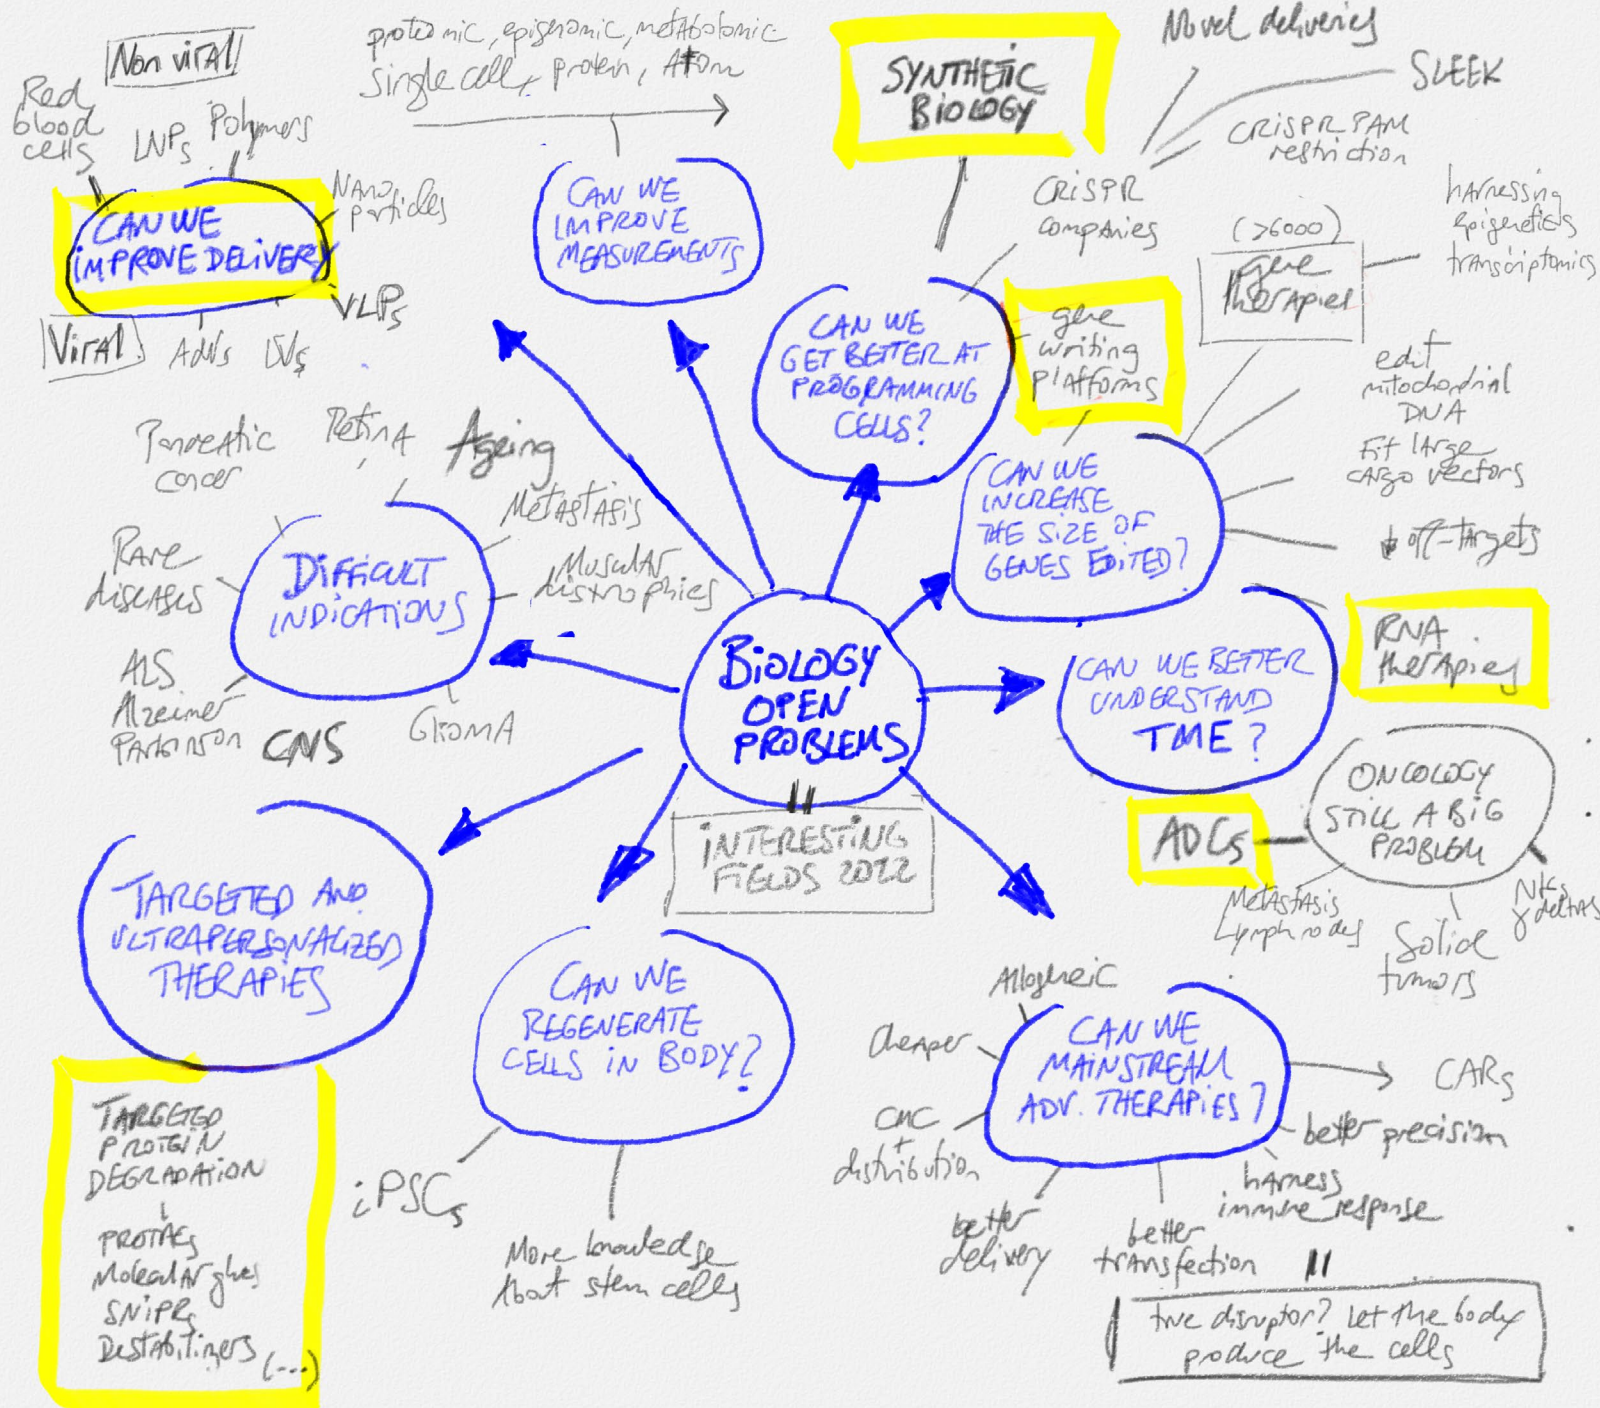 Non viral
Red
blood
cells
LNPs
Polymers
Nano
particles
CAN WE
IMPROVE DELIVERY
VLPs
Viral
AAVs
LVs
proteomic, epigenomic, metabolomic
single cell, protein, Atom
CAN WE
IMPROVE
MEASUREMENTS
SYNTHETIC
BIOLOGY
Novel deliveries
SLEEK
CRISPR PAM
restriction
CRISPR
companies
(>6000)
gene
therapies
harnessing
epigenetics
transcriptomics
CAN WE
GET BETTER AT
PROGRAMMING
CELLS?
gene
writing
platforms
edit
mitochondrial
DNA
Fit large
cargo vectors
off-targets
CAN WE
INCREASE
THE SIZE OF
GENES EDITED?
Pancreatic
cancer
Retina
Ageing
Metastasis
Muscular
distrophies
Rare
diseases
DIFFICULT
INDICATIONS
ALS
Alzeimer
Parkinson
CNS
Glioma
BIOLOGY
OPEN
PROBLEMS
INTERESTING
FIELDS 2022
CAN WE BETTER
UNDERSTAND
TME?
RNA
therapies
ONCOLOGY
STILL A BIG
PROBLEM
ADCs
Metastasis
Lymph nodes
Solid
tumors
NKs
γ deltas
TARGETTED AND
ULTRAPERSONALIZED
THERAPIES
TARGETED
PROTEIN
DEGRADATION
PROTACs
Molecular glues
SNIPRs
Destabilizers
(...)
CAN WE
REGENERATE
CELLS IN BODY?
iPSCs
More knowledge
About stem cells
Allogneic
Cheaper
CMC
+
distribution
CAN WE
MAINSTREAM
ADV. THERAPIES?
CARs
better precision
harness
immune response
better
delivery
better
transfection
true disruptor? Let the body
produce the cells